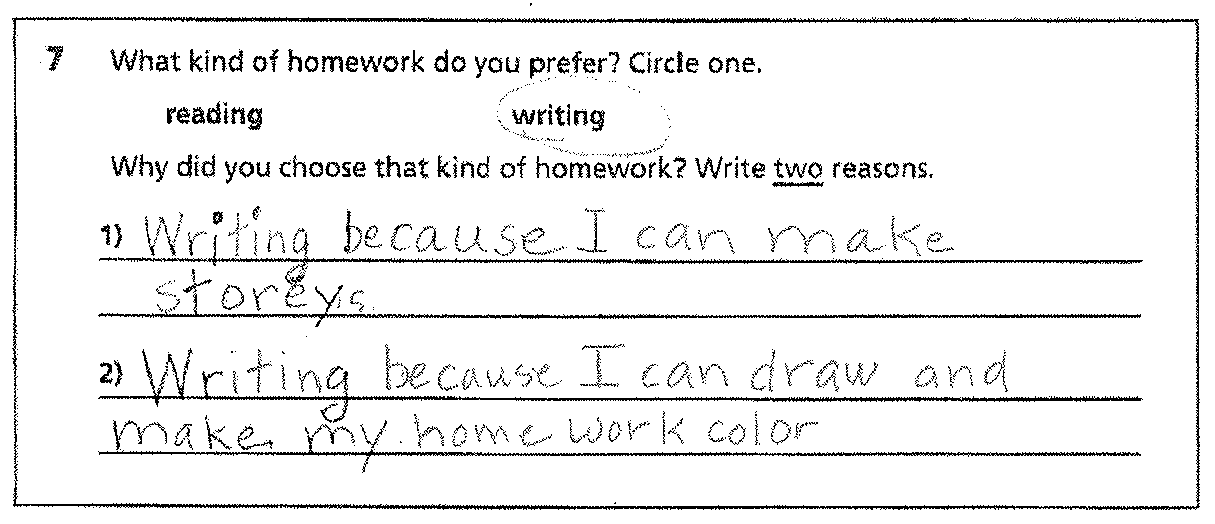 7 What kind of homework do you prefer? Circle one.
reading writing
Why did you choose that kind of homework? Write two reasons.
1) Writing because I can make
storeys.
2) Writing because I can draw and
make my home work color